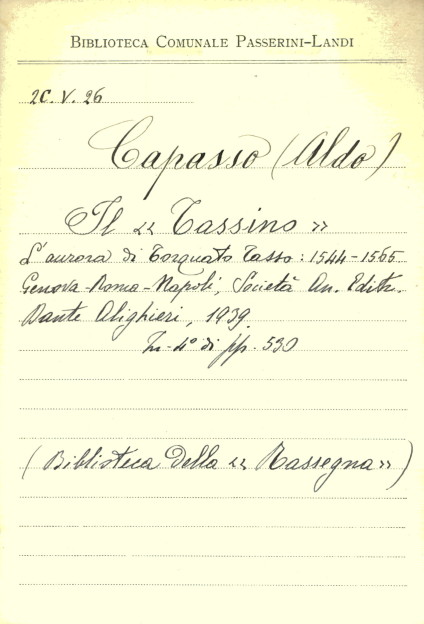 BIBLIOTECA COMUNALE PASSERINI-LANDI
2C. V. 26
Capasso (Aldo)
Il « Tassino »
L'aurora di Torquato Tasso: 1544-1565
Genova-Roma-Napoli, Società An. Editr.
Dante Alighieri, 1939.
In-4° di pp. 530
(Biblioteca della « Rassegna »)